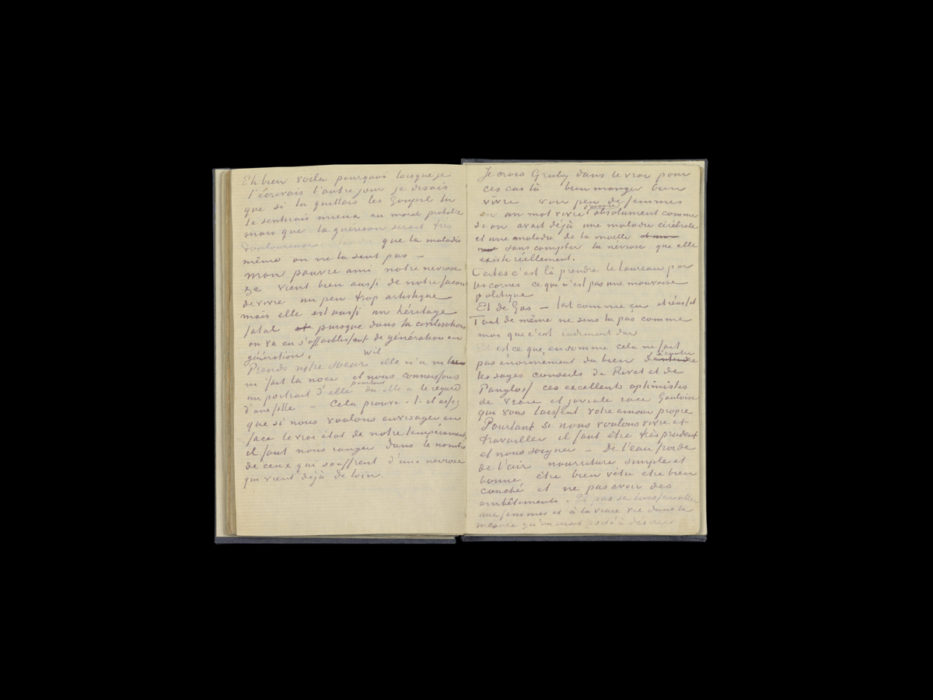 Eh bien voilà pourquoi lorsque je
t'écrivais l'autre jour je disais
que si tu quittais les Goupil tu
te sentirais mieux au moral peutêtre
mais que la guerison serait très
douloureuse. que la maladie
même on ne la sent pas —
Mon pauvre ami notre nevrose
vient bien aussi de notre façon
de vivre un peu trop artistique
mais elle est aussi un héritage
fatal puisque dans la civilisation
on va en s'affaiblissant de génération en
génération.
Prends notre soeur Wil elle n'a ni
ni fait la noce et nous connaissons
un portrait d'elle pourtant où elle a le regard
d'une folle — Cela prouve-t-il assez
que si nous voulons envisager en
face le vrai état de notre tempérament
il faut nous ranger dans le nombre
de ceux qui souffrent d'une nevrose
qui vient déjà de loin.
Je crois Gruby dans le vrai pour
ces cas là bien manger bien
vivre voir peu de femmes
en un mot vivre d'avance absolument comme
si on avait déjà une maladie cérébrale
et une maladie de la moelle
sans compter la nevrose qui elle
existe réellement.
Certes c'est là prendre le taureau par
les cornes ce qui n'est pas une mauvaise
politique.
Et de Gas — fait comme ça et réussit
Tout de même ne sens tu pas comme
moi que c'est rudement dur
Et est ce que en somme cela ne fait
pas énormement du bien d'écouter
les sages conseils de Rivet et de
Pangloss ces excellents optimistes
de vraie et joviale race Gauloise
qui vous laissent votre amour propre
Pourtant si nous voulons vivre et
travailler il faut être très prudent
et nous soigner — de l'eau froide
de l'air nourriture simple et
bonne, être bien vêtu être bien
couché et ne pas avoir des
embêtements. Et pas se laisser aller
aux femmes et à la vraie vie dans la
mesure qu'on serait porté à désirer